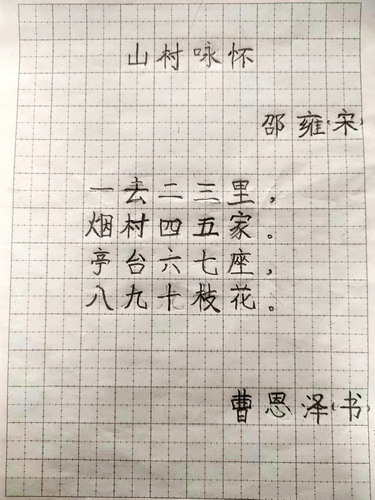 山村咏怀
邵雍(宋)
一去二三里，
烟村四五家。
亭台六七座，
八九十枝花。
曹恩泽(书)